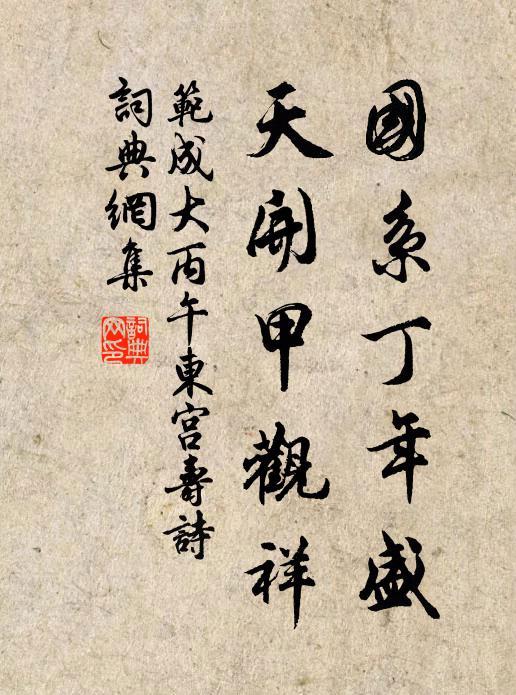 國系丁年盛
天開甲觀祥
範成大丙午東宮壽詩
詞典網集
詞典網印